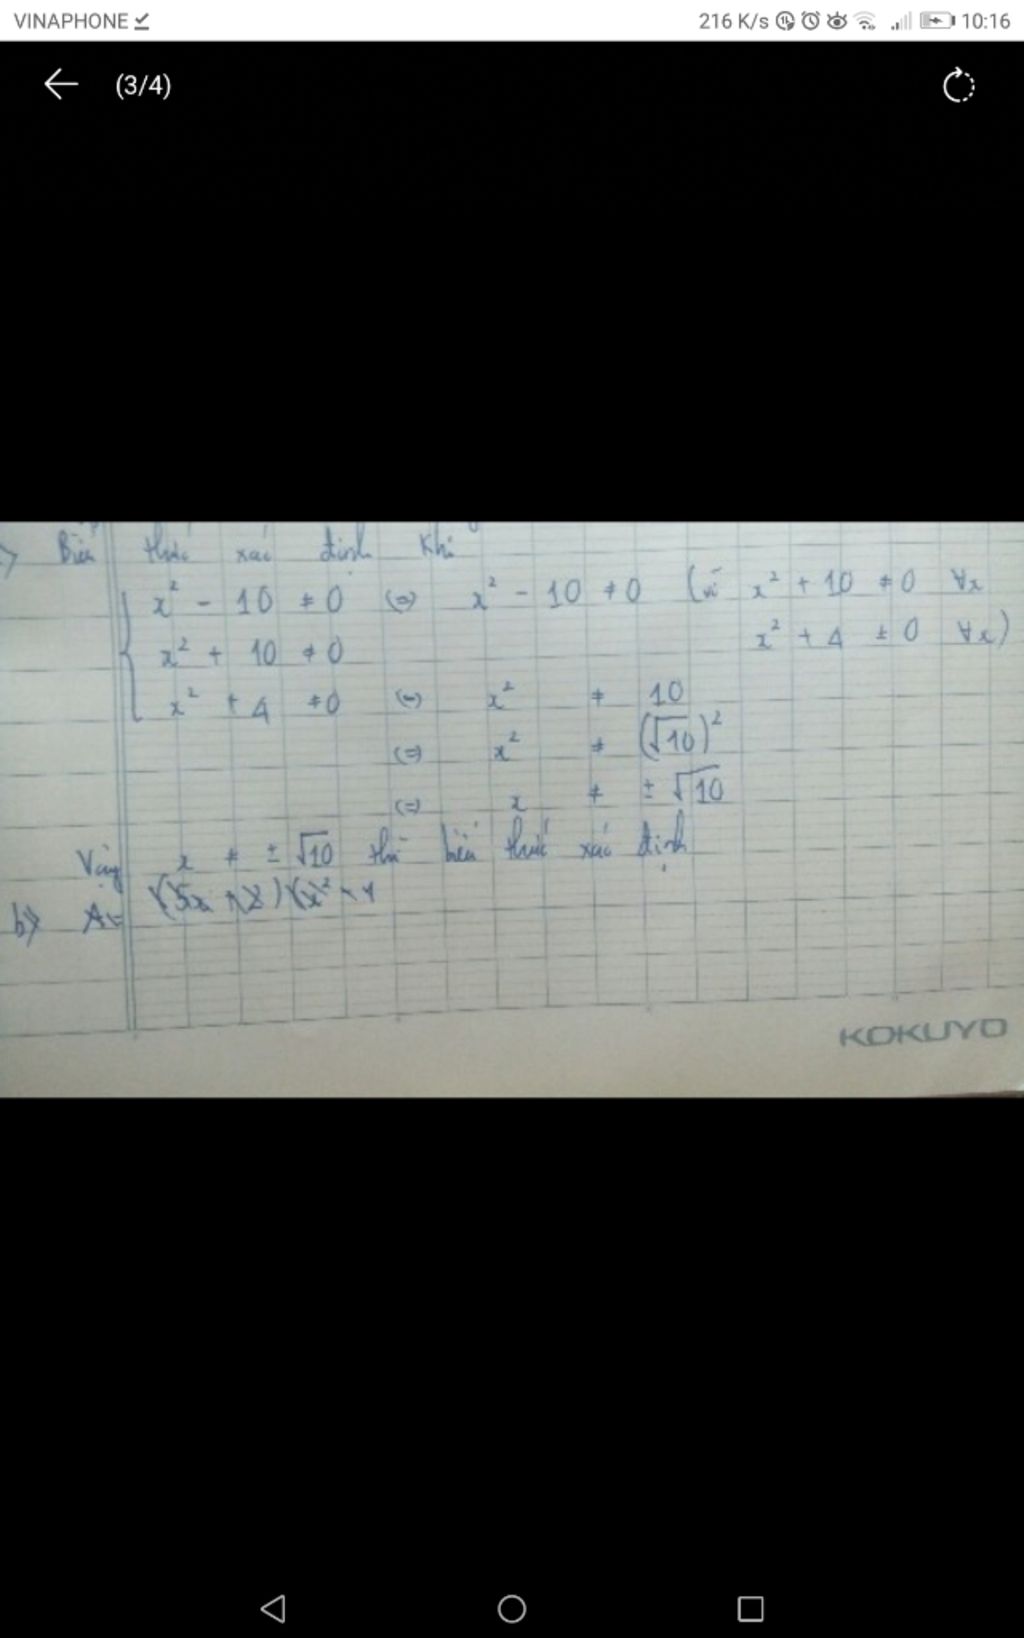 VINAPHONE 216 K/s 10:16
(3/4)
Biểu thức xác định khi
x² - 10 ≠ 0 (=) x² - 10 ≠ 0 (vì x² + 10 ≠ 0 ∀x
x² + 10 ≠ 0 x² + 4 ≠ 0 ∀x)
x² + 4 ≠ 0 (=) x² ≠ 10
(=) x² ≠ (√10)²
(=) x ≠ ± √10
Vậy x ≠ ± √10 thì biểu thức xác định
b) A=
KOKUYO